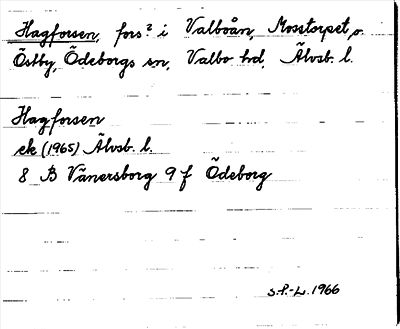 Hagforsen, fors² i Valboån, Mosstorpet, o.
Östby, Ödeborgs sn, Valbo hd, Älvsb. l.
Hagforsen
ek (1965) Älvsb. l.
8 B Vänersborg 9 f Ödeborg
S.P.-L. 1966